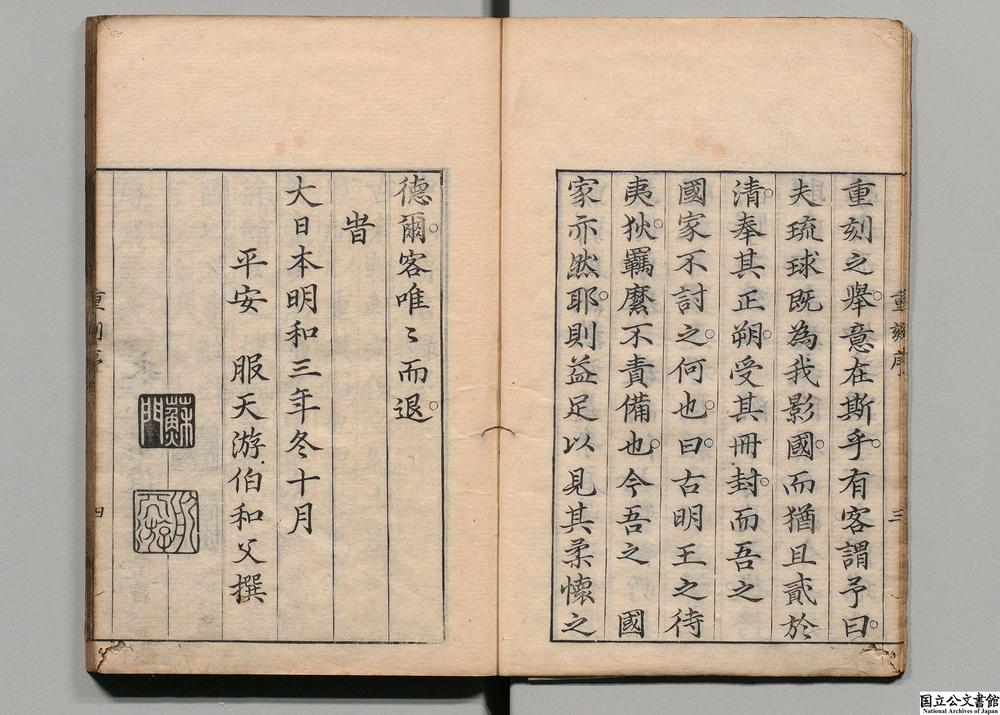 重刻之舉。意在斯乎。有客謂予曰。
夫琉球既為我影國。而猶且貳於
清奉其正朔。受其冊封。而吾之
國家不討之。何也。曰。古明王之待
夷狄。羈縻不責備也。今吾之　國
家亦然耶。則益足以見其柔懷之
德爾。客唯〻而退。
旹
大日本明和三年冬十月
平安　服天游伯和父撰
蘇門
重刻序
三
四
国立公文書館
National Archives of Japan